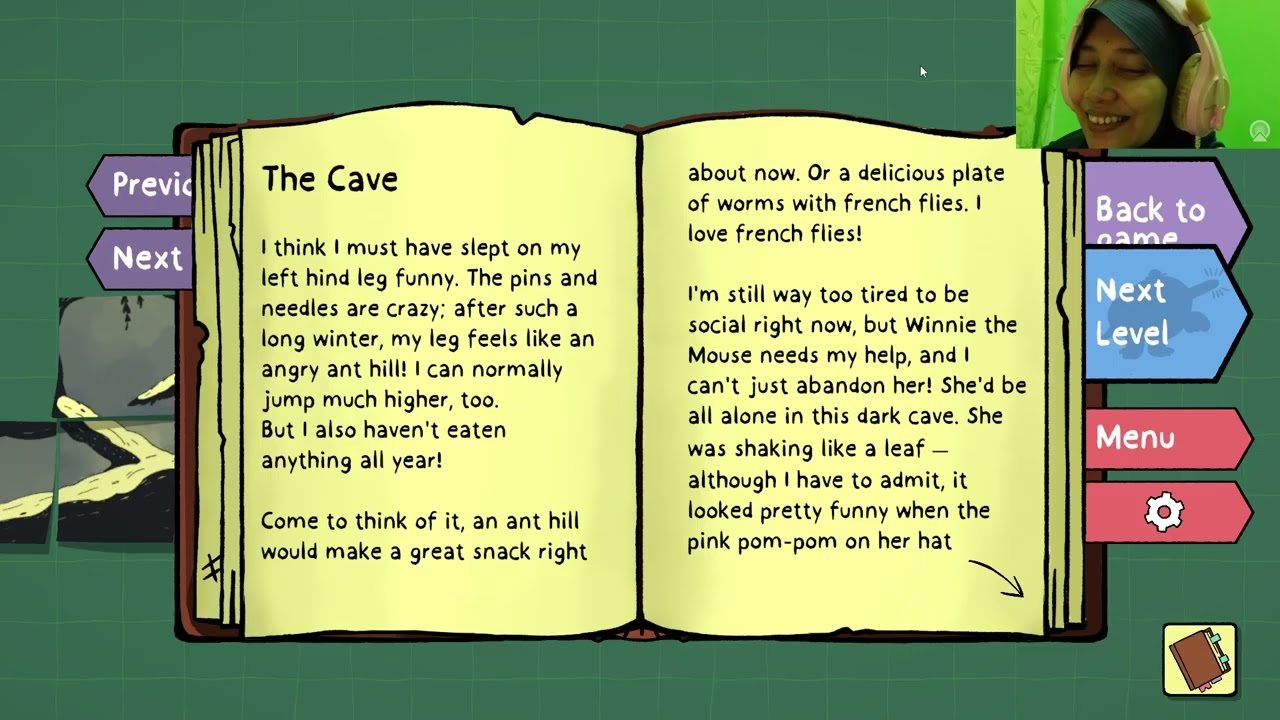 Previc
Next
The Cave
I think I must have slept on my
left hind leg funny. The pins and
needles are crazy; after such a
long winter, my leg feels like an
angry ant hill! I can normally
jump much higher, too.
But I also haven't eaten
anything all year!
Come to think of it, an ant hill
would make a great snack right
about now. Or a delicious plate
of worms with french flies. I
love french flies!
I'm still way too tired to be
social right now, but Winnie the
Mouse needs my help, and I
can't just abandon her! She'd be
all alone in this dark cave. She
was shaking like a leaf —
although I have to admit, it
looked pretty funny when the
pink pom-pom on her hat
Back to
game
Next
Level
Menu